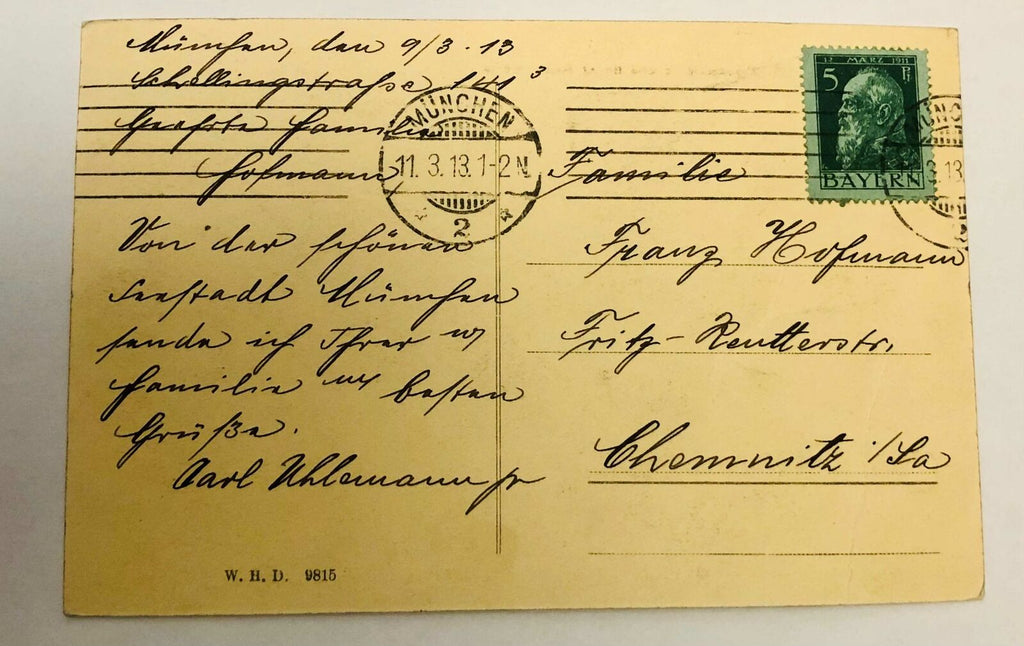 München, den 9/3. 13
Schellingstraße 141³
Geehrte Familie
Hofmann
Von der schönen
Seestadt München
sende ich Ihrer
Familie besten
Grüße.
Carl Uhlemann jr
W. H. D. 9815
MÜNCHEN
11. 3. 13. 1-2 N.
2
12. MÄRZ 1911
5 Pf
BAYERN
MÜNC
3. 13
Familie
Franz Hofmann
Fritz-Reutterstr.
Chemnitz i/Sa